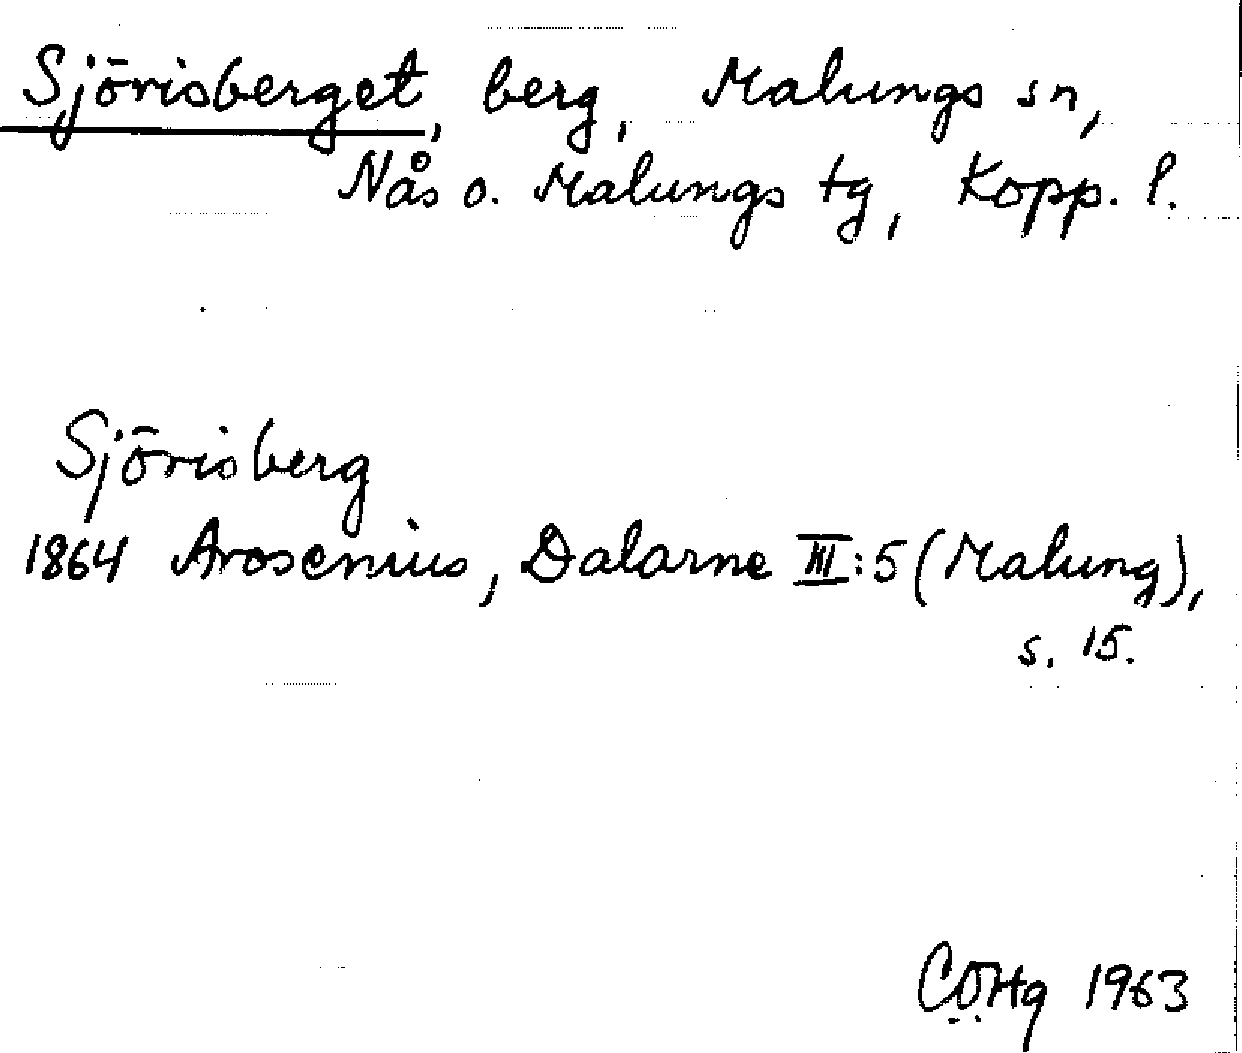 Sjörisberget, berg, Malungs sn,
Nås o. Malungs tg, Kopp. l.
Sjörisberg
1864 Arosenius, Dalarne III:5 (Malung),
s. 15.
1963